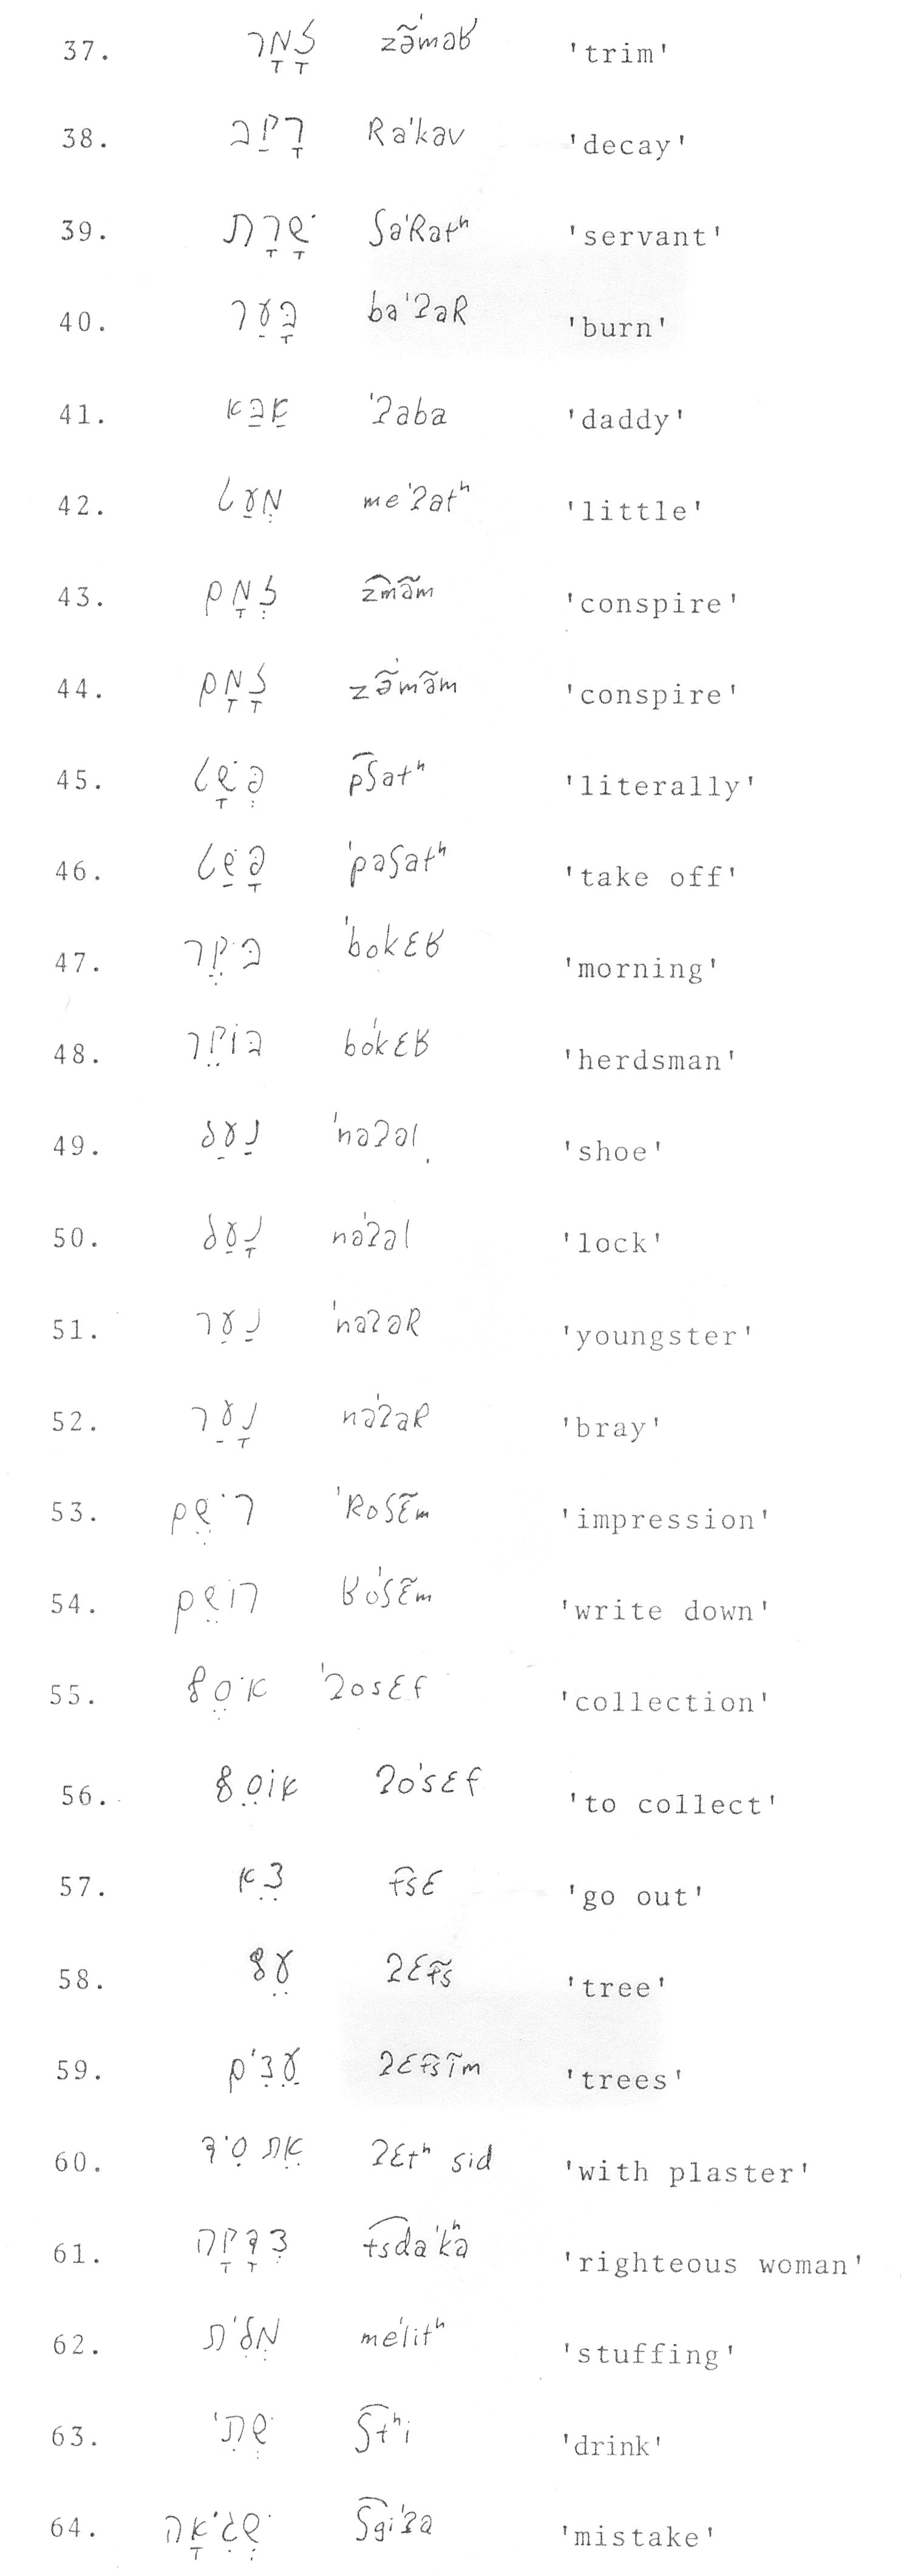 37. זָמָר zə̃ˈmaʁ 'trim'
38. רָקַב Raˈkav 'decay'
39. שָׁרָת ʃaˈRatʰ 'servant'
40. בָּעַר baˈʔaR 'burn'
41. אַבַּא ˈʔaba 'daddy'
42. מְעַט meˈʔatʰ 'little'
43. זְמָם z͡mãm 'conspire'
44. זָמָם zə̃ˈmãm 'conspire'
45. פְּשָׁט p͡ʃatʰ 'literally'
46. פָּשַׁט ˈpaʃatʰ 'take off'
47. בֹּקֶר ˈbokɛʁ 'morning'
48. בוֹקֵר boˈkɛʁ 'herdsman'
49. נַעַל ˈnaʔal 'shoe'
50. נָעַל naˈʔal 'lock'
51. נַעַר ˈnaʔaR 'youngster'
52. נָעַר naˈʔaR 'bray'
53. רֹשֶׁם ˈRoʃɛ̃m 'impression'
54. רוֹשֵׁם ʁoˈʃɛ̃m 'write down'
55. אֹסֶף ˈʔosɛf 'collection'
56. אוֹסֵף ʔoˈsɛf 'to collect'
57. צֵא t͡sɛ 'go out'
58. עֵץ ʔɛt͡s 'tree'
59. עֵצִים ʔɛt͡sĩm 'trees'
60. אֵת סִיד ʔɛtʰ sid 'with plaster'
61. צְדָקָה t͡sdaˈkʰa 'righteous woman'
62. מְלִית meˈlitʰ 'stuffing'
63. שְׁתִי ʃ͡tʰi 'drink'
64. שְׁגִיאָה ʃ͡giˈʔa 'mistake'